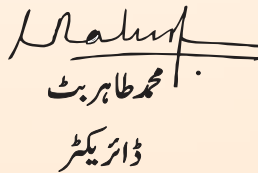 محمد طاہر بٹ
ڈائریکٹر